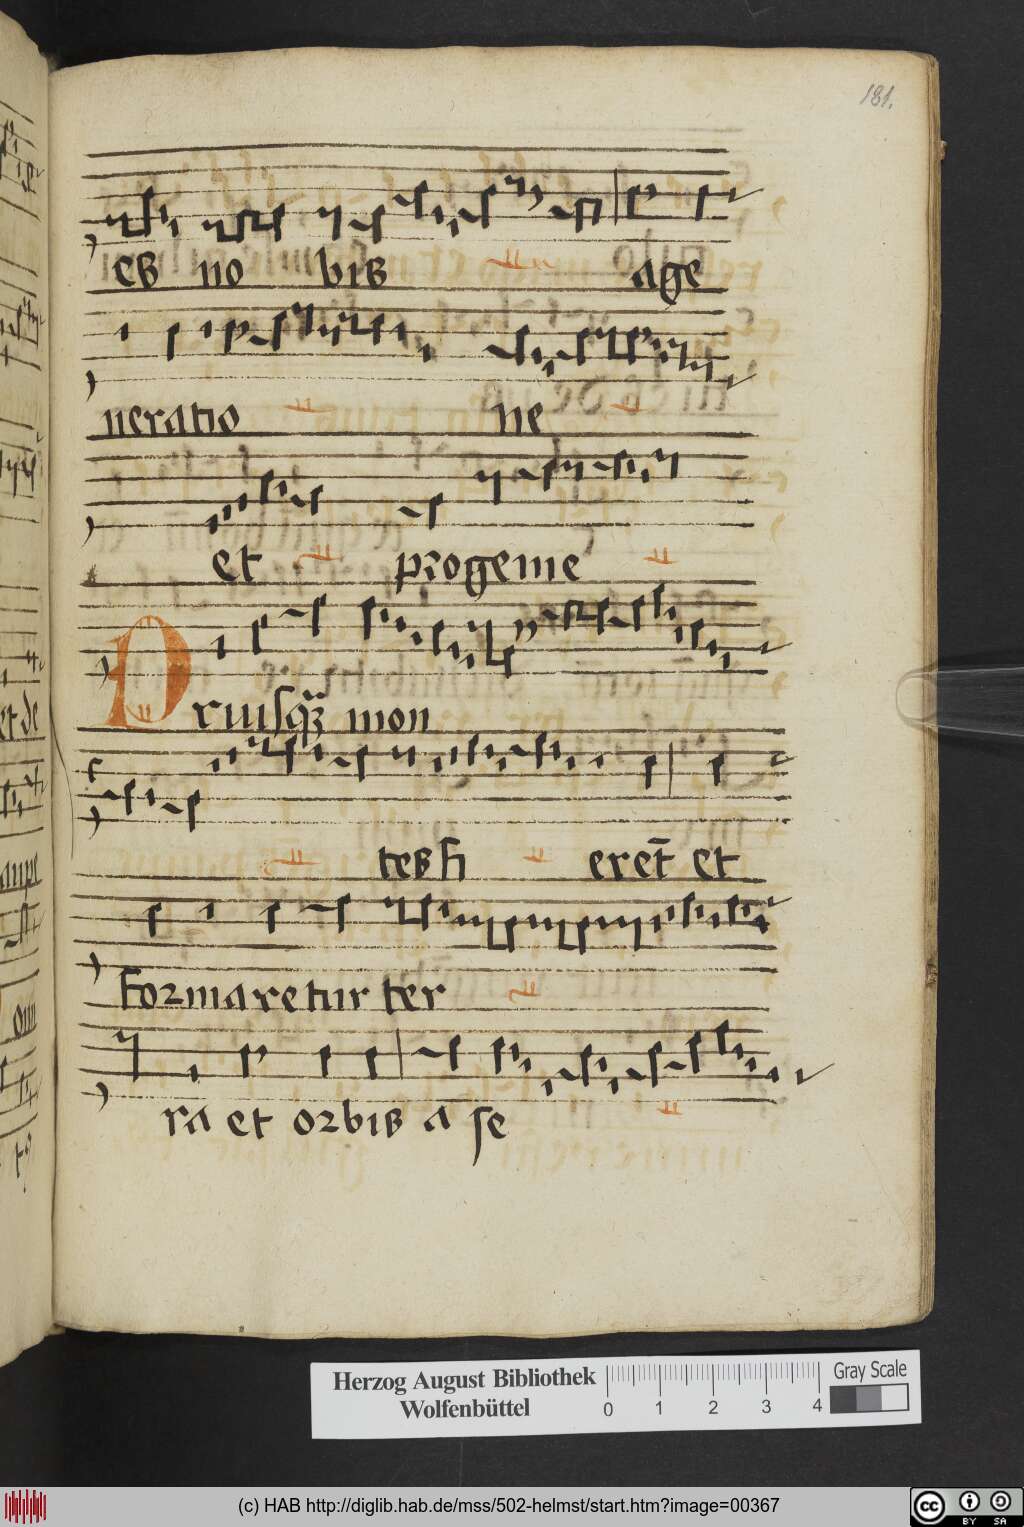 181.
es no bis age
neratio ne
et progenie
Priusq̃ mon
tes fi erēt et
formaretur ter
ra et orbis a se
Herzog August Bibliothek
Wolfenbüttel
0 1 2 3 4
Gray Scale
(c) HAB http://diglib.hab.de/mss/502-helmst/start.htm?image=00367
cc BY SA